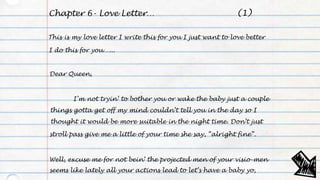 Chapter 6- Love Letter... (1)
This is my love letter I write this for you I just want to love better
I do this for you......
Dear Queen,
I'm not tryin' to bother you or wake the baby just a couple
things gotta get off my mind couldn't tell you in the day so I
thought it would be more suitable in the night time. Don't just
stroll pass give me a little of your time she say, "alright fine".
Well, excuse me for not bein' the projected men of your visio-men
seems like lately all your actions lead to let's have a baby yo,